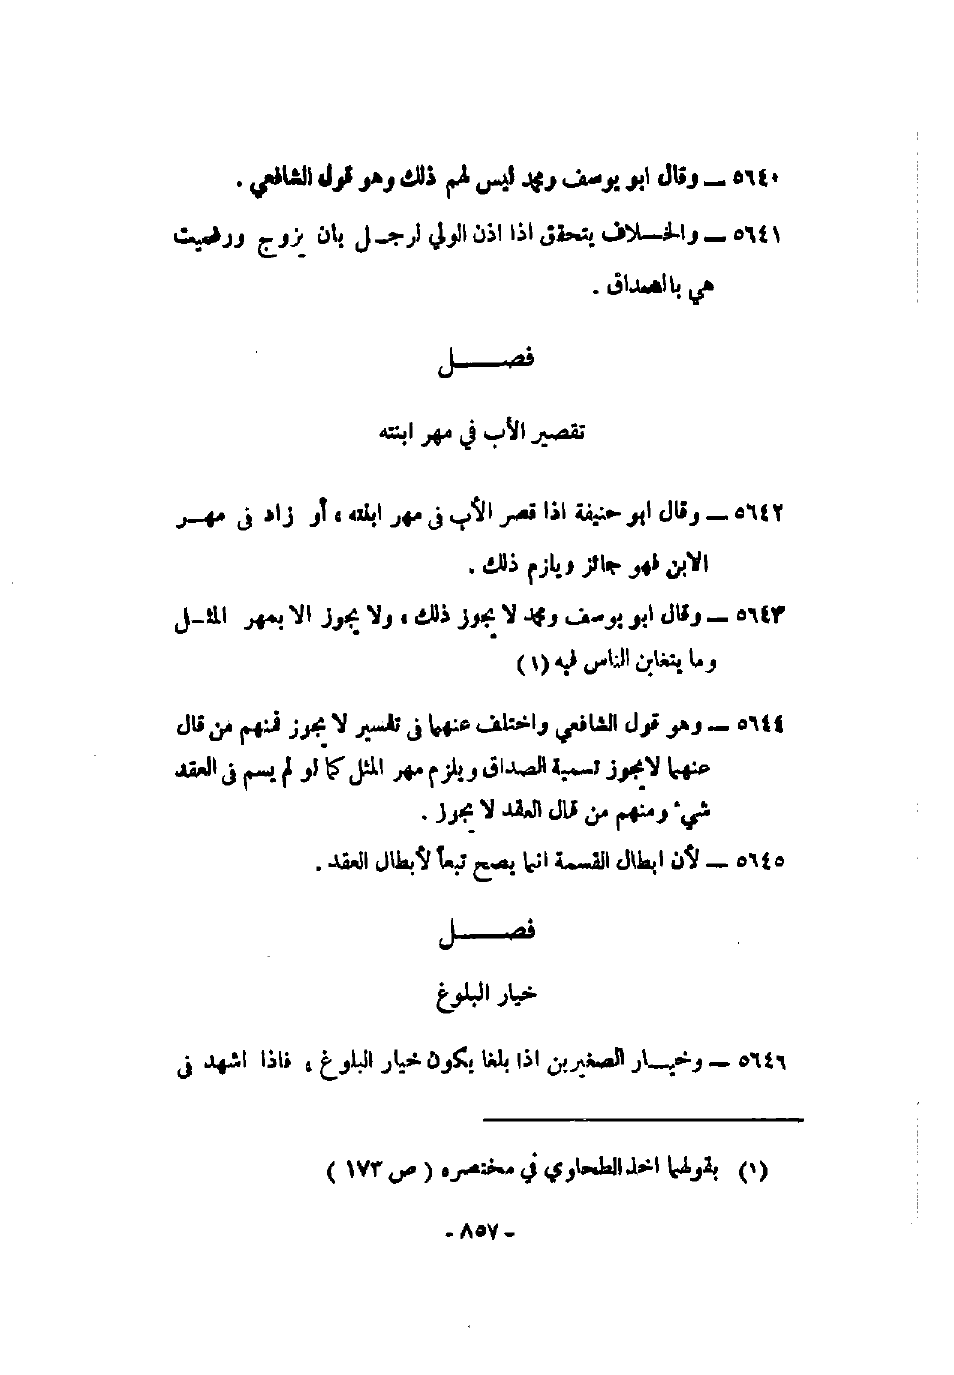 ٥٦٤٠ ــ وقال ابو يوسف ومحمد ليس لهم ذلك وهو قول الشافعي .
٥٦٤١ ــ والخــلاف يتحقق اذا اذن الولي لرجــل بان يزوج ورضيت
هي بالصداق .
فصــــل
تقصير الأب في مهر ابنته
٥٦٤٢ ــ وقال ابو حنيفة اذا قصر الأب في مهر ابنته ، أو زاد في مهــر
الابن فهو جائز ويلزم ذلك .
٥٦٤٣ ــ وقال ابو يوسف ومحمد لا يجوز ذلك ، ولا يجوز الا بمهر المثــل
وما يتغابن الناس فيه (١)
٥٦٤٤ ــ وهو قول الشافعي واختلف عنهما في تفسير لا يجوز فمنهم من قال
عنهما لا يجوز تسمية الصداق ويلزم مهر المثل كما لو لم يسم في العقد
شيء ومنهم من قال العقد لا يجوز .
٥٦٤٥ ــ لأن ابطال القسمة انما يصح تبعاً لأبطال العقد .
فصــــل
خيار البلوغ
٥٦٤٦ ــ وخيــار الصغيرين اذا بلغا يكون خيار البلوغ ، فاذا اشهد في
(١) بقولهما اخذ الطحاوي في مختصره ( ص ١٧٣ )
- ٨٥٧ -